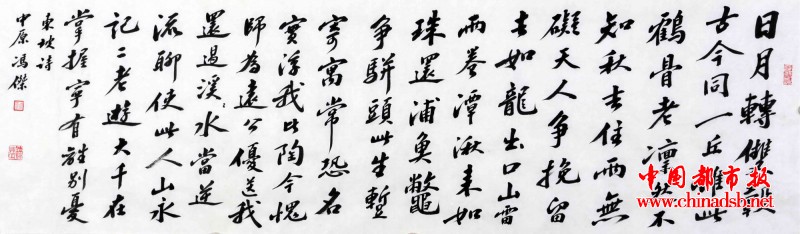 日月轉雙轂
古今同一丘雖此
鶴骨老凜然不
知秋去住兩無
礙天人爭挽留
去如龍出山雷
雨卷潭湫来如
珠還浦魚鼈
爭駢頭此生蹔
寄寓常恐名
實浮我比陶令愧
師為遠公優送我
還過溪水當逆
流聊使此人山永
記二老遊大千在
掌握寧有離別憂
東坡詩
中原馮傑
中国都市报
www.chinadsb.net